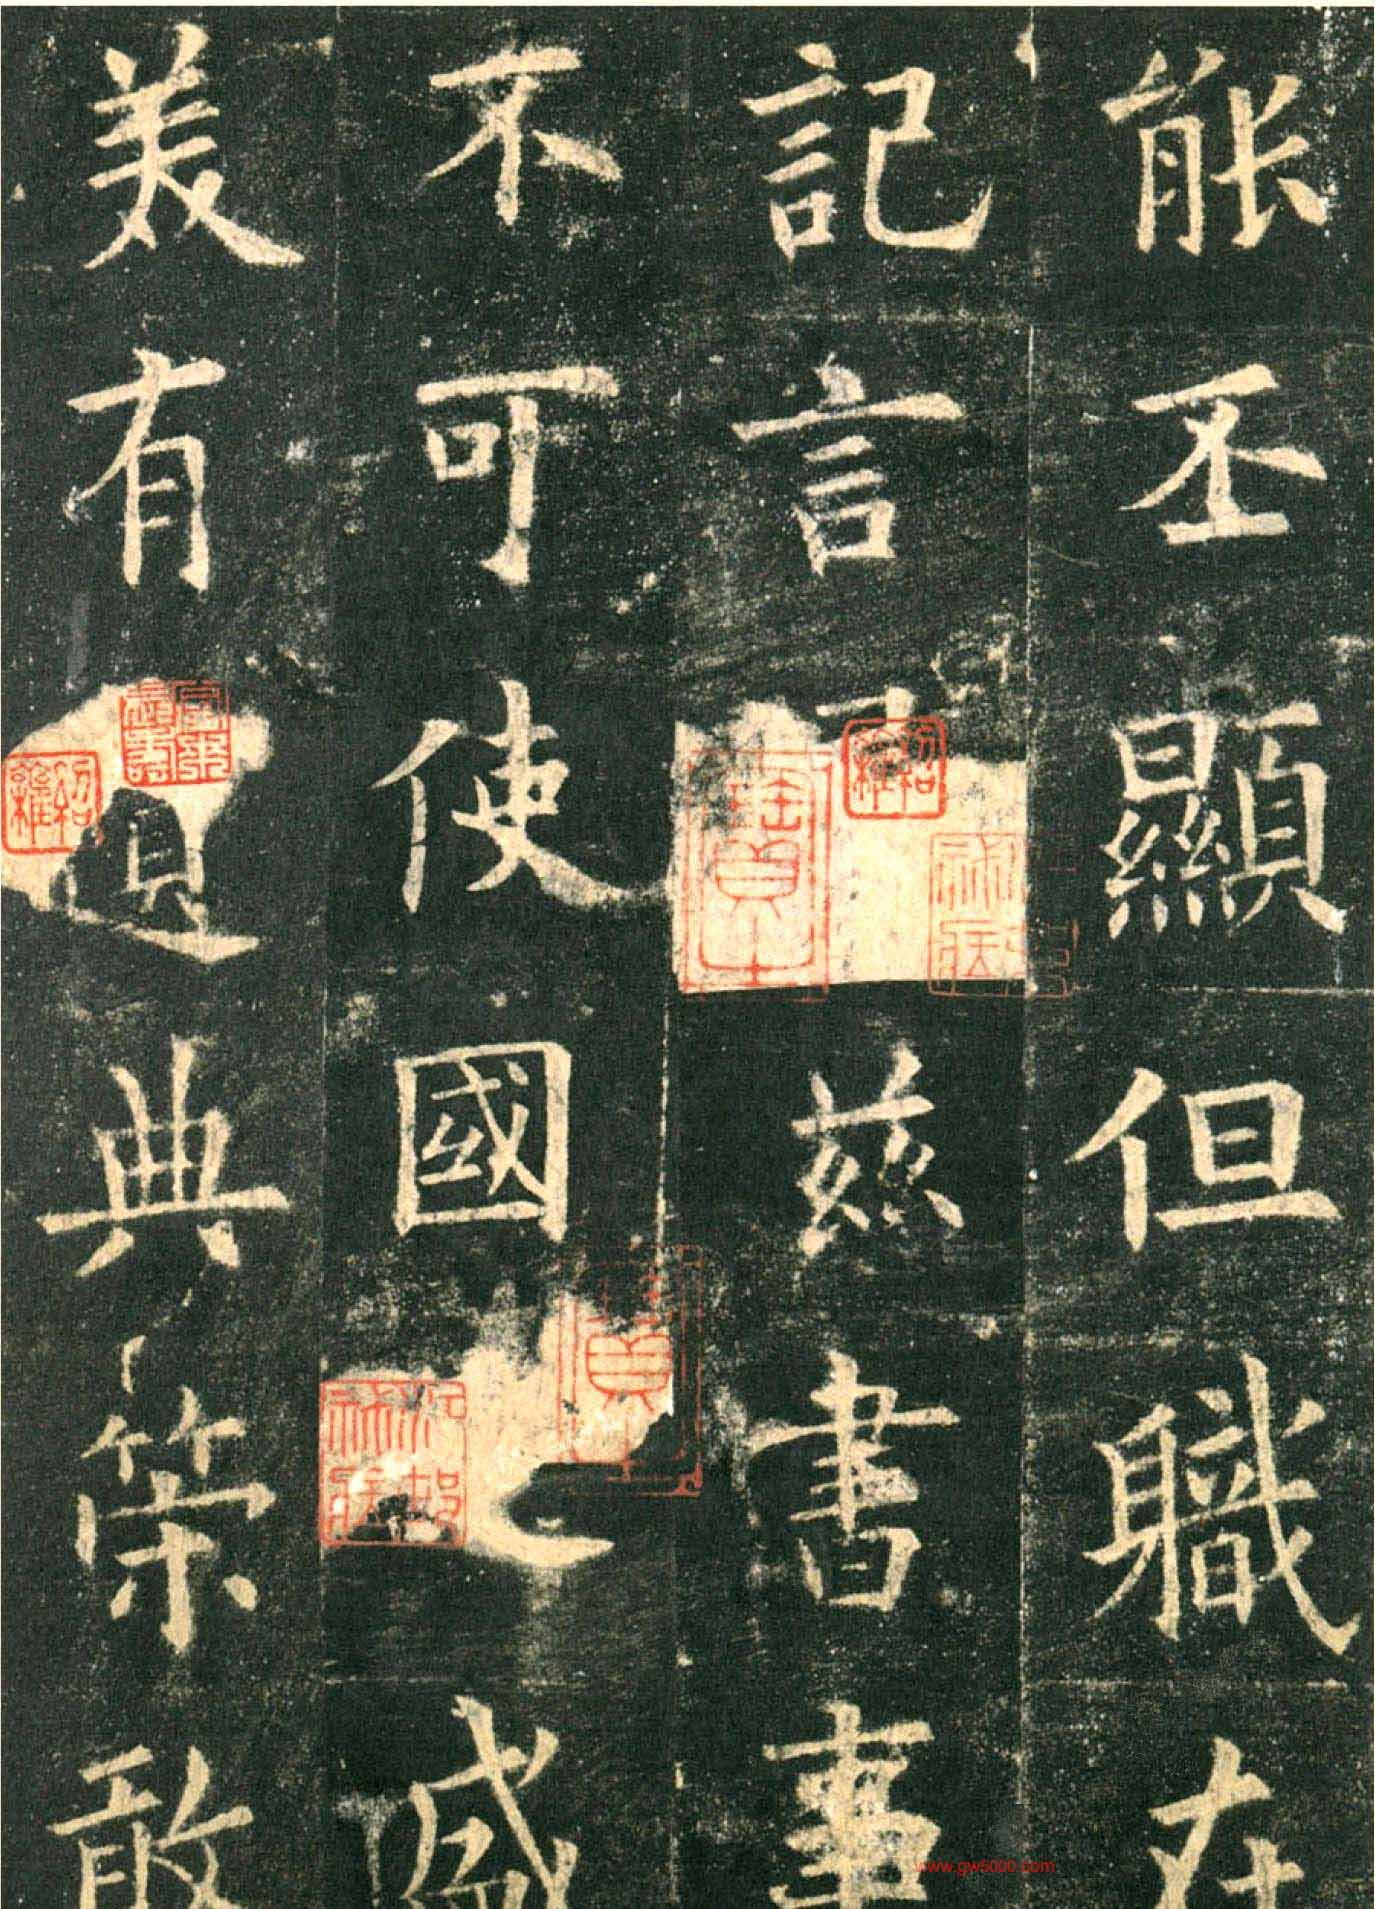 能丕顯但職在
記言茲書事
不可使國盛
美有遺典策敢
www.gw5000.com